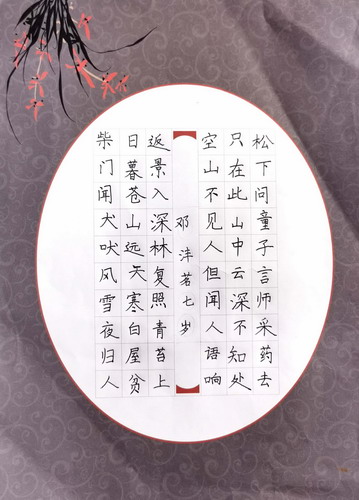 松下问童子言师采药去
只在此山中云深不知处
空山不见人但闻人语响
邓沣若七岁
返景入深林复照青苔上
日暮苍山远天寒白屋贫
柴门闻犬吠风雪夜归人